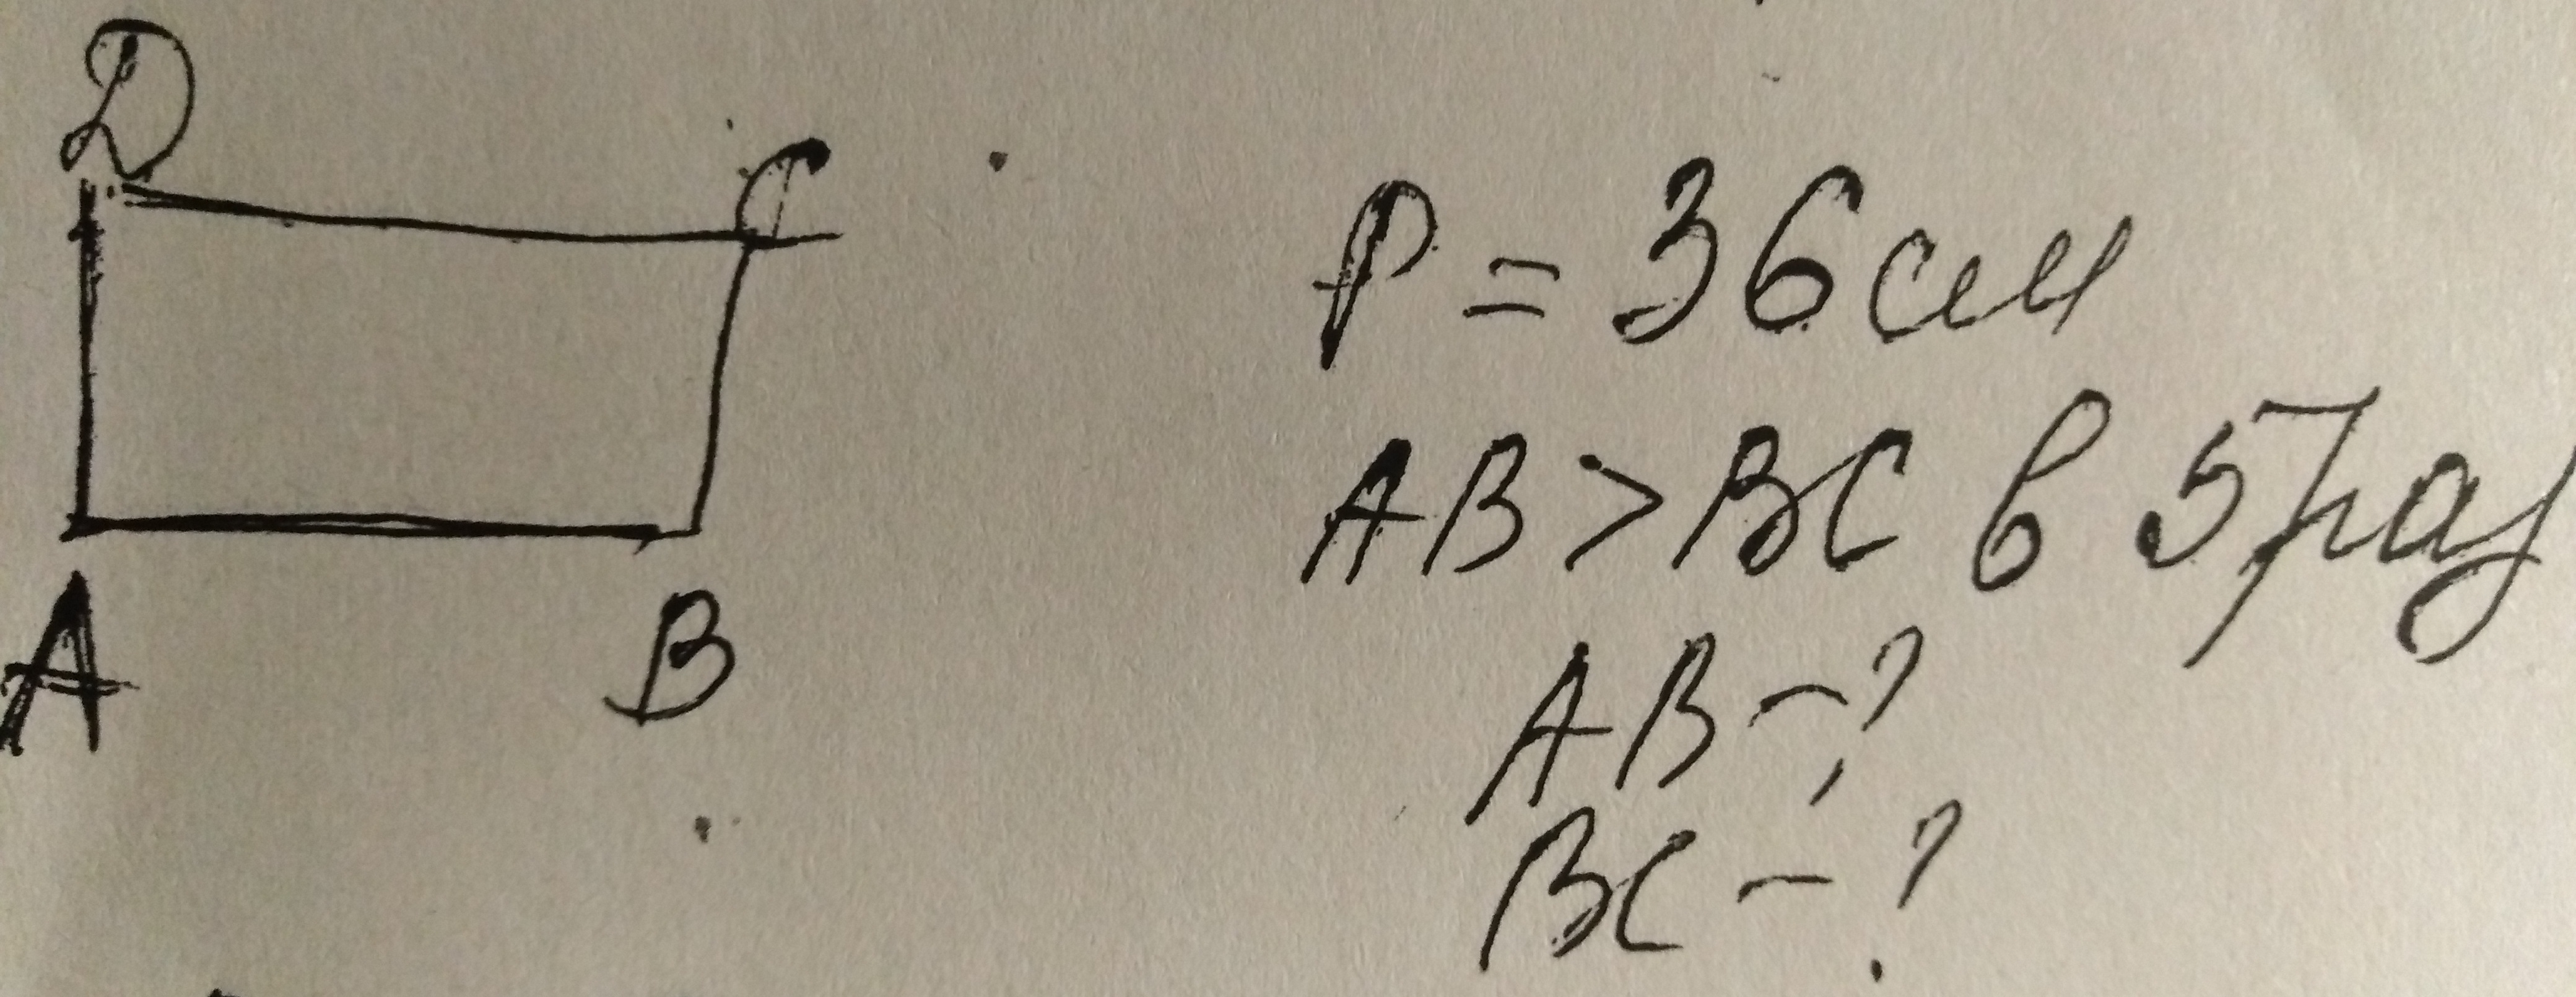 D
C
A
B
P = 36 см
AB > BC в 5 раз
AB - ?
BC - ?